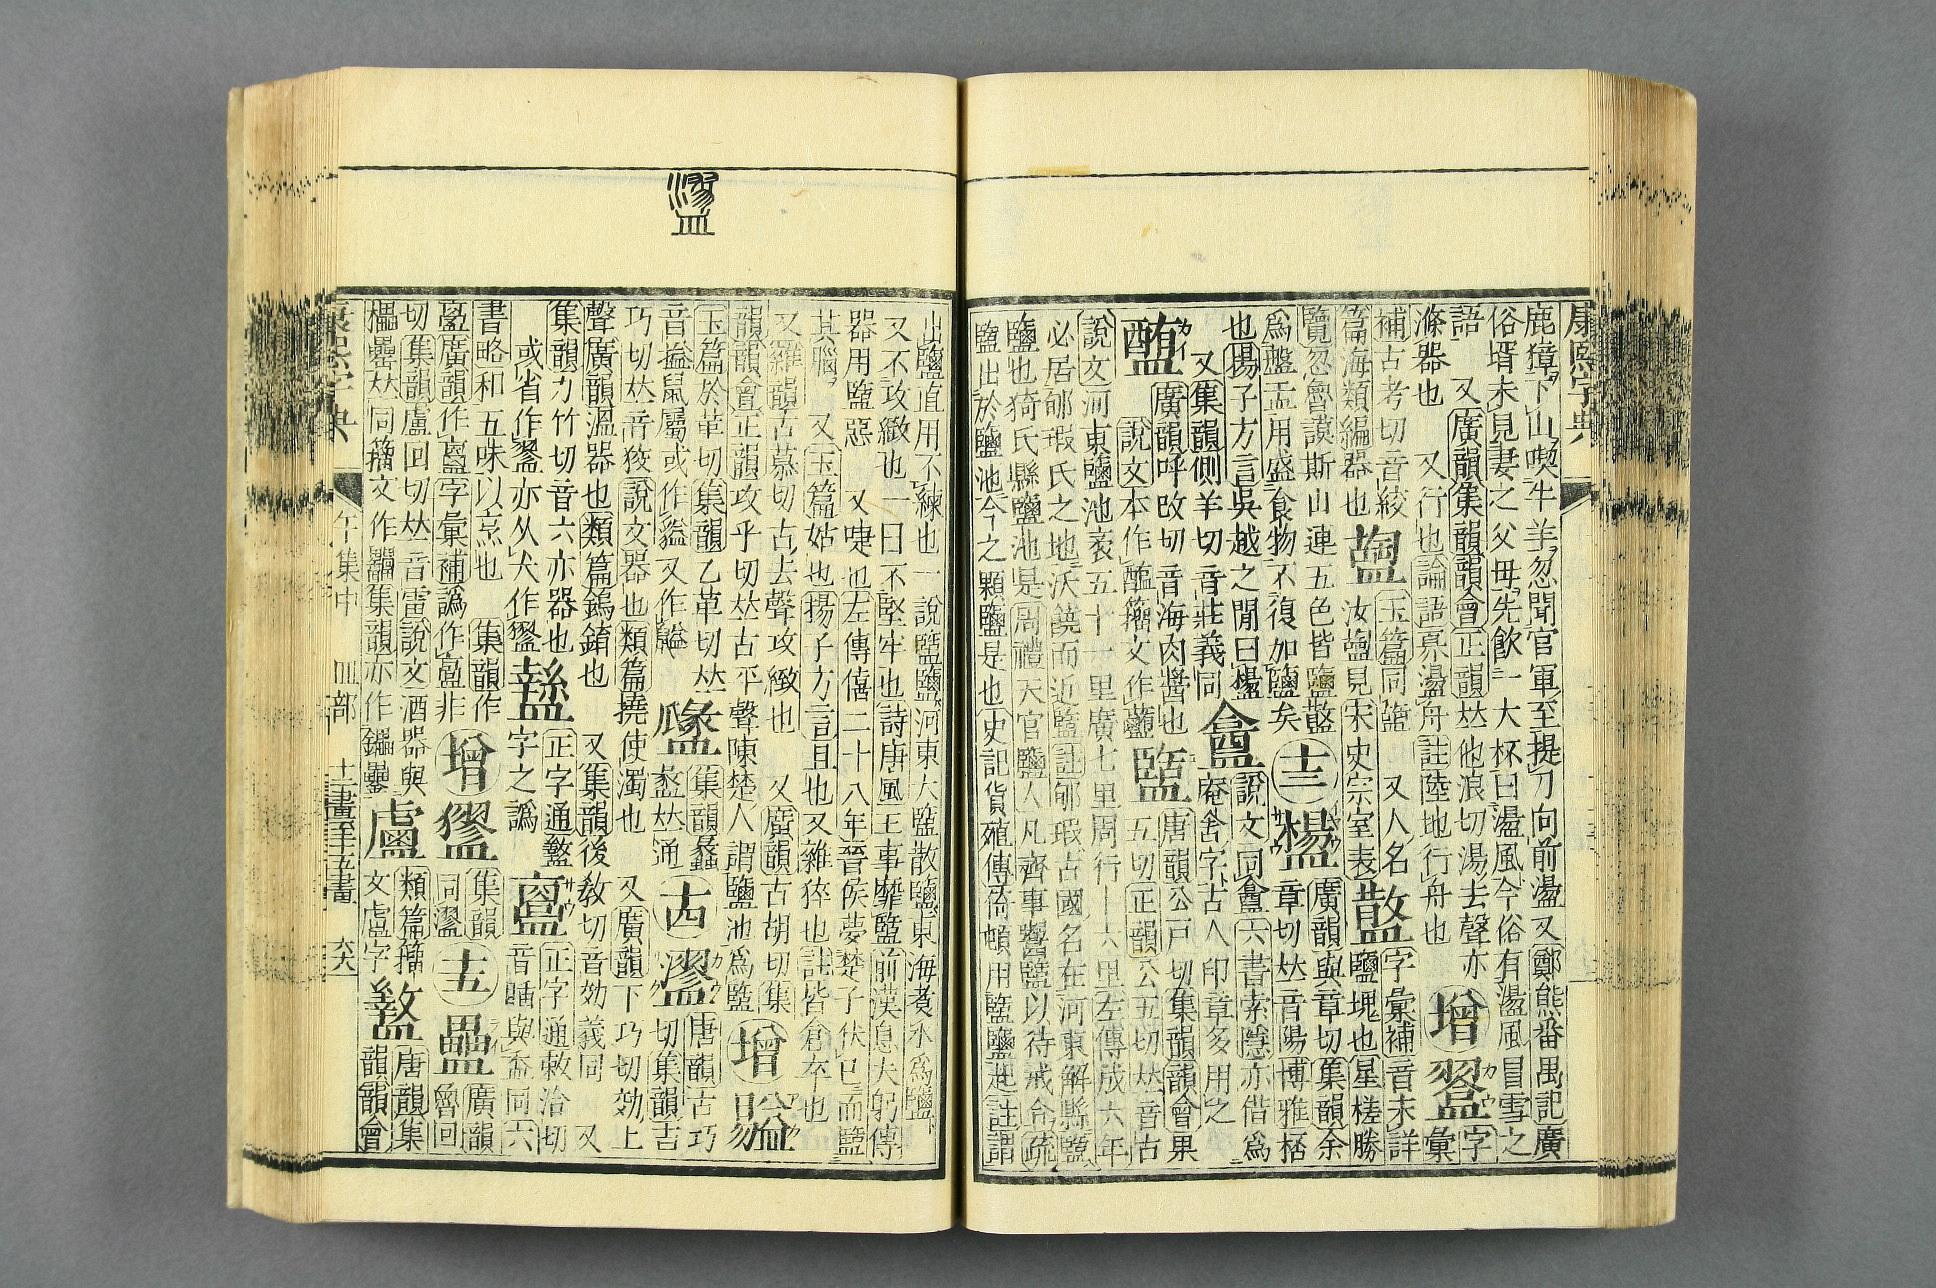 盪
康熙字典
鹿獐下山喫牛羊忽聞官軍至提刀向前盪又鄭熊番禺記廣
俗壻未見妻之父母先飲一大杯曰盪風今俗有盪風冒雪之
語 又廣韻集韻韻會正韻𠀤他浪切湯去聲亦 增 字
滌器也 又行也論語奡盪舟註陸地行舟也 彙
補古考切音絞 玉篇同盬 又人名 字彙補音未詳
篇海類編器也 見宋史宗室表 鹽塊也星槎勝
覽忽魯謨斯山連五色皆鹽 十三 廣韻與章切集韻余
章切𠀤音陽博雅桮
爲盤盂用盛食物不復加鹽矣
也揚子方言吳越之閒曰 盫 說文同盦六書索隱亦借爲
又集韻側羊切音莊義同 庵舍字古人印章多用之
廣韻呼改切音海肉醬也 盬 唐韻公戸切集韻韻會果
說文本作醢籒文作 五切正韻公五切𠀤音古
說文河東鹽池袤五十一里廣七里周行十六里左傳成六年
必居郇瑕氏之地沃饒而近盬註郇瑕古國名在河東解縣鹽
鹽也猗氏縣鹽池是周禮天官鹽人凡齊事鬻盬以待戒令疏
盬出於鹽池今之顆鹽是也史記貨殖傳猗頓用盬鹽起註謂
出鹽直用不練也一說盬鹽河東大鹽散鹽東海煮水爲鹽
又不攻緻也一曰不堅牢也詩唐風王事靡盬前漢息夫躬傳
器用盬惡 又啑也左傳僖二十八年晉侯夢楚子伏己而盬
其腦 又玉篇姑也揚子方言且也又雜猝也註皆倉卒也
又羅韻古慕切古去聲攻緻也 又廣韻古胡切集
韻韻會正韻攻乎切𠀤古平聲陳楚人謂鹽池爲盬 增
玉篇於革切集韻乙革切𠀤
音搤鼠屬或作 又作
集韻 𠀤通 十四 唐韻古巧切集韻古
巧切𠀤音狡說文器也類篇撓使濁也 又廣韻下巧切効上
聲廣韻溫器也類篇鎢錥也 又集韻後敎切音効義同 又
集韻力竹切音六亦器也
或省作 亦从犬作
正字通
字之譌
正字通敕洽切
音 與 同六
書略和五味以烹也 集韻作
廣韻作 字彙補譌作 非
增
集韻
同
十五
廣韻魯回
切集韻盧回切𠀤音雷說文酒器與
櫑罍𠀤同籒文作 集韻亦作
類篇籒
文盧字
唐韻集
韻韻會
康熙字典 午集中 皿部 十三畫至十五畫